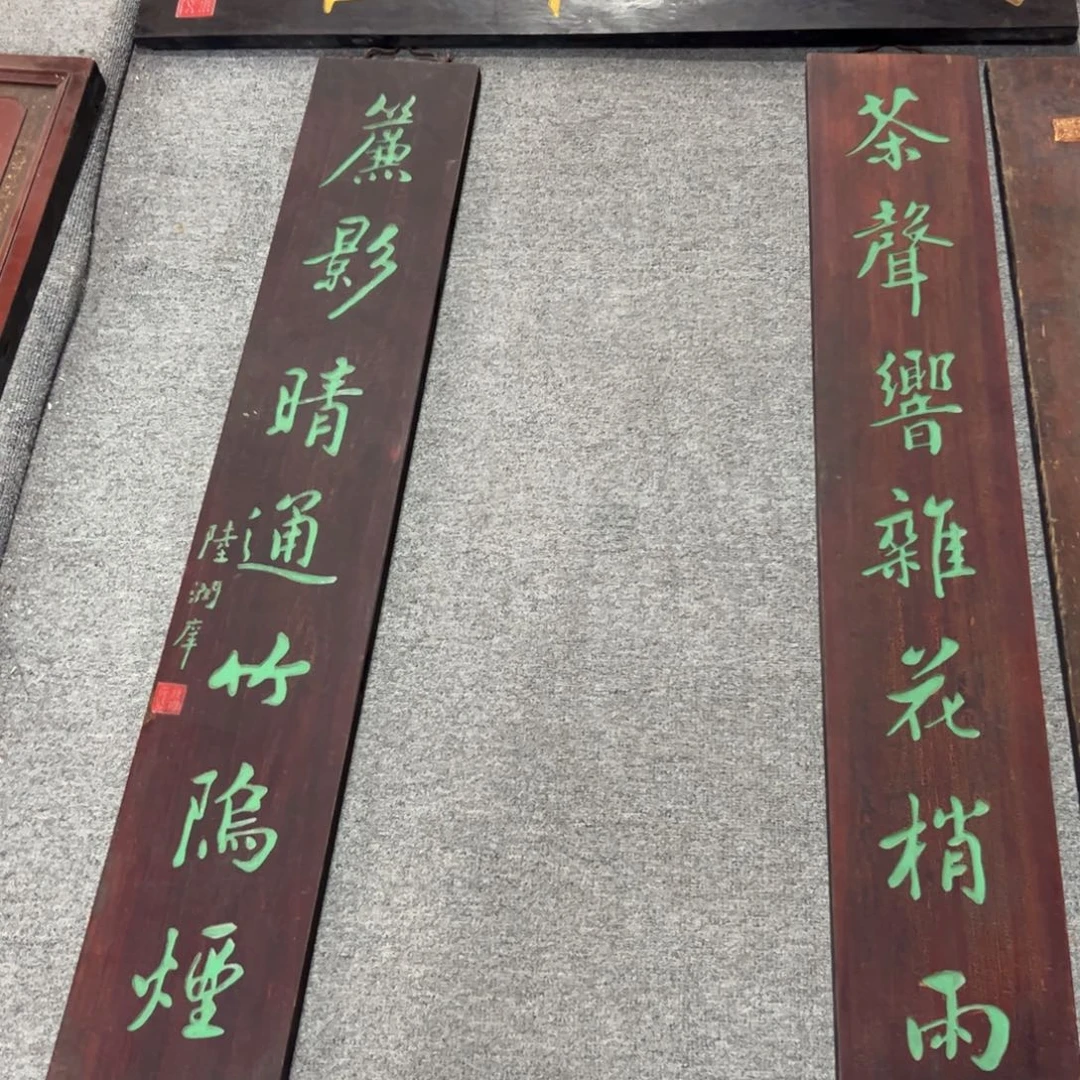 茶聲響雜花梢雨
簾影晴通竹隖煙
陸潤庠